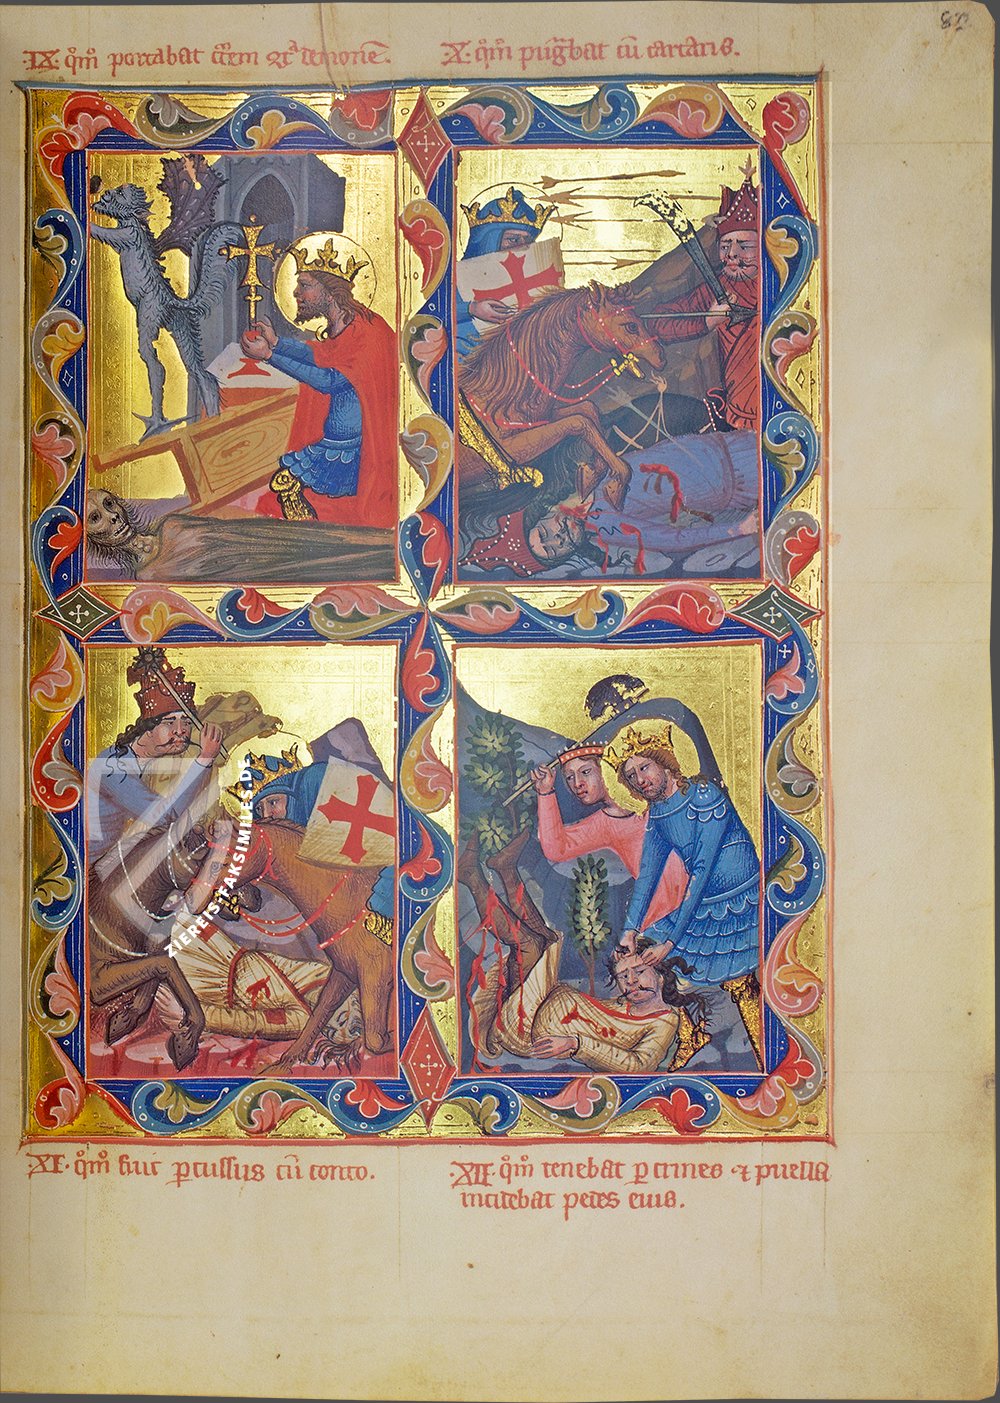 82
·IX· qm̄ portabat cr̄em
X· qm̄ pug̅bat cū tartaris.
ZIEREIS-FAKSIMILES.DE
·XI· qm̄ fuit percussus cū conto.
·XII· qm̄ tenebat per crines et puella
incidebat pedes eius.